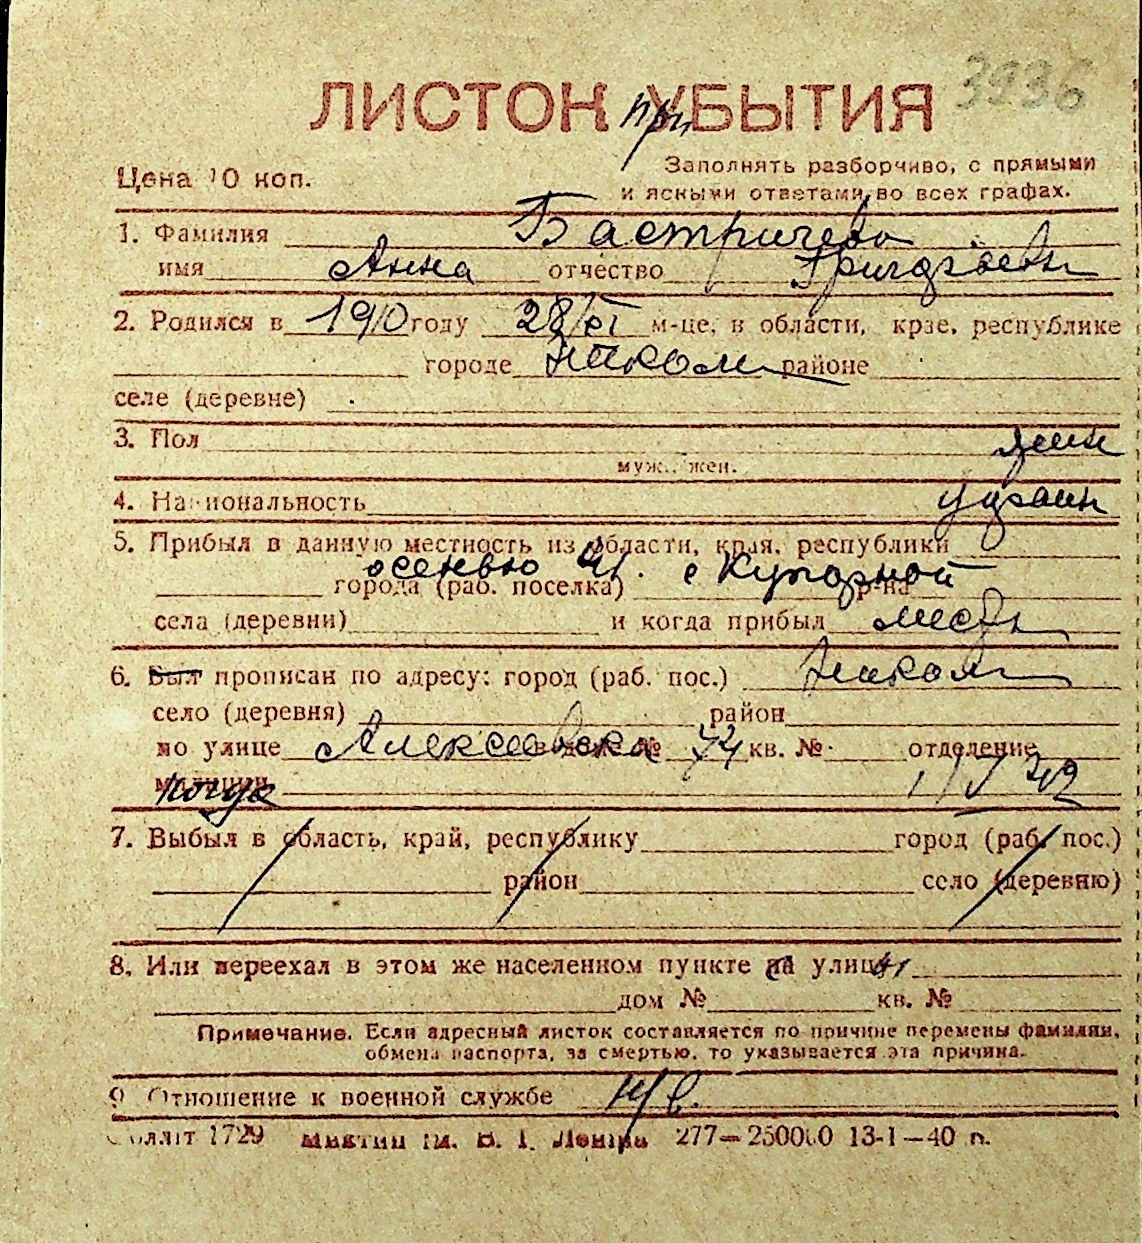 3936
ЛИСТОК УБЫТИЯ
при
Цена 10 коп.
Заполнять разборчиво, с прямыми
и ясными ответами во всех графах.
1. Фамилия Бастричева
имя Анна отчество Григорьевн
2. Родился в 1910 году 28/XI м-це, в области, крае, республике
городе Никол районе
селе (деревне)
3. Пол жен
муж., жен.
4. Национальность украин
5. Прибыл в данную местность из области, края, республики
осенью 41. с
города (раб. поселка) р-на
села (деревни) и когда прибыл
6. Был прописан по адресу: город (раб. пос.) Никол
село (деревня) район
по улице Алексеевска в доме № 74 кв. № отделение
милиции
7. Выбыл в область, край, республику город (раб. пос.)
район село (деревню)
8. Или переехал в этом же населенном пункте на улицу
дом № кв. №
Примечание. Если адресный листок составляется по причине перемены фамилии,
обмена паспорта, за смертью, то указывается эта причина.
9. Отношение к военной службе н/в.
Облліт 1729 ім. В. І. Леніна 277—250000 13-1—40 п.